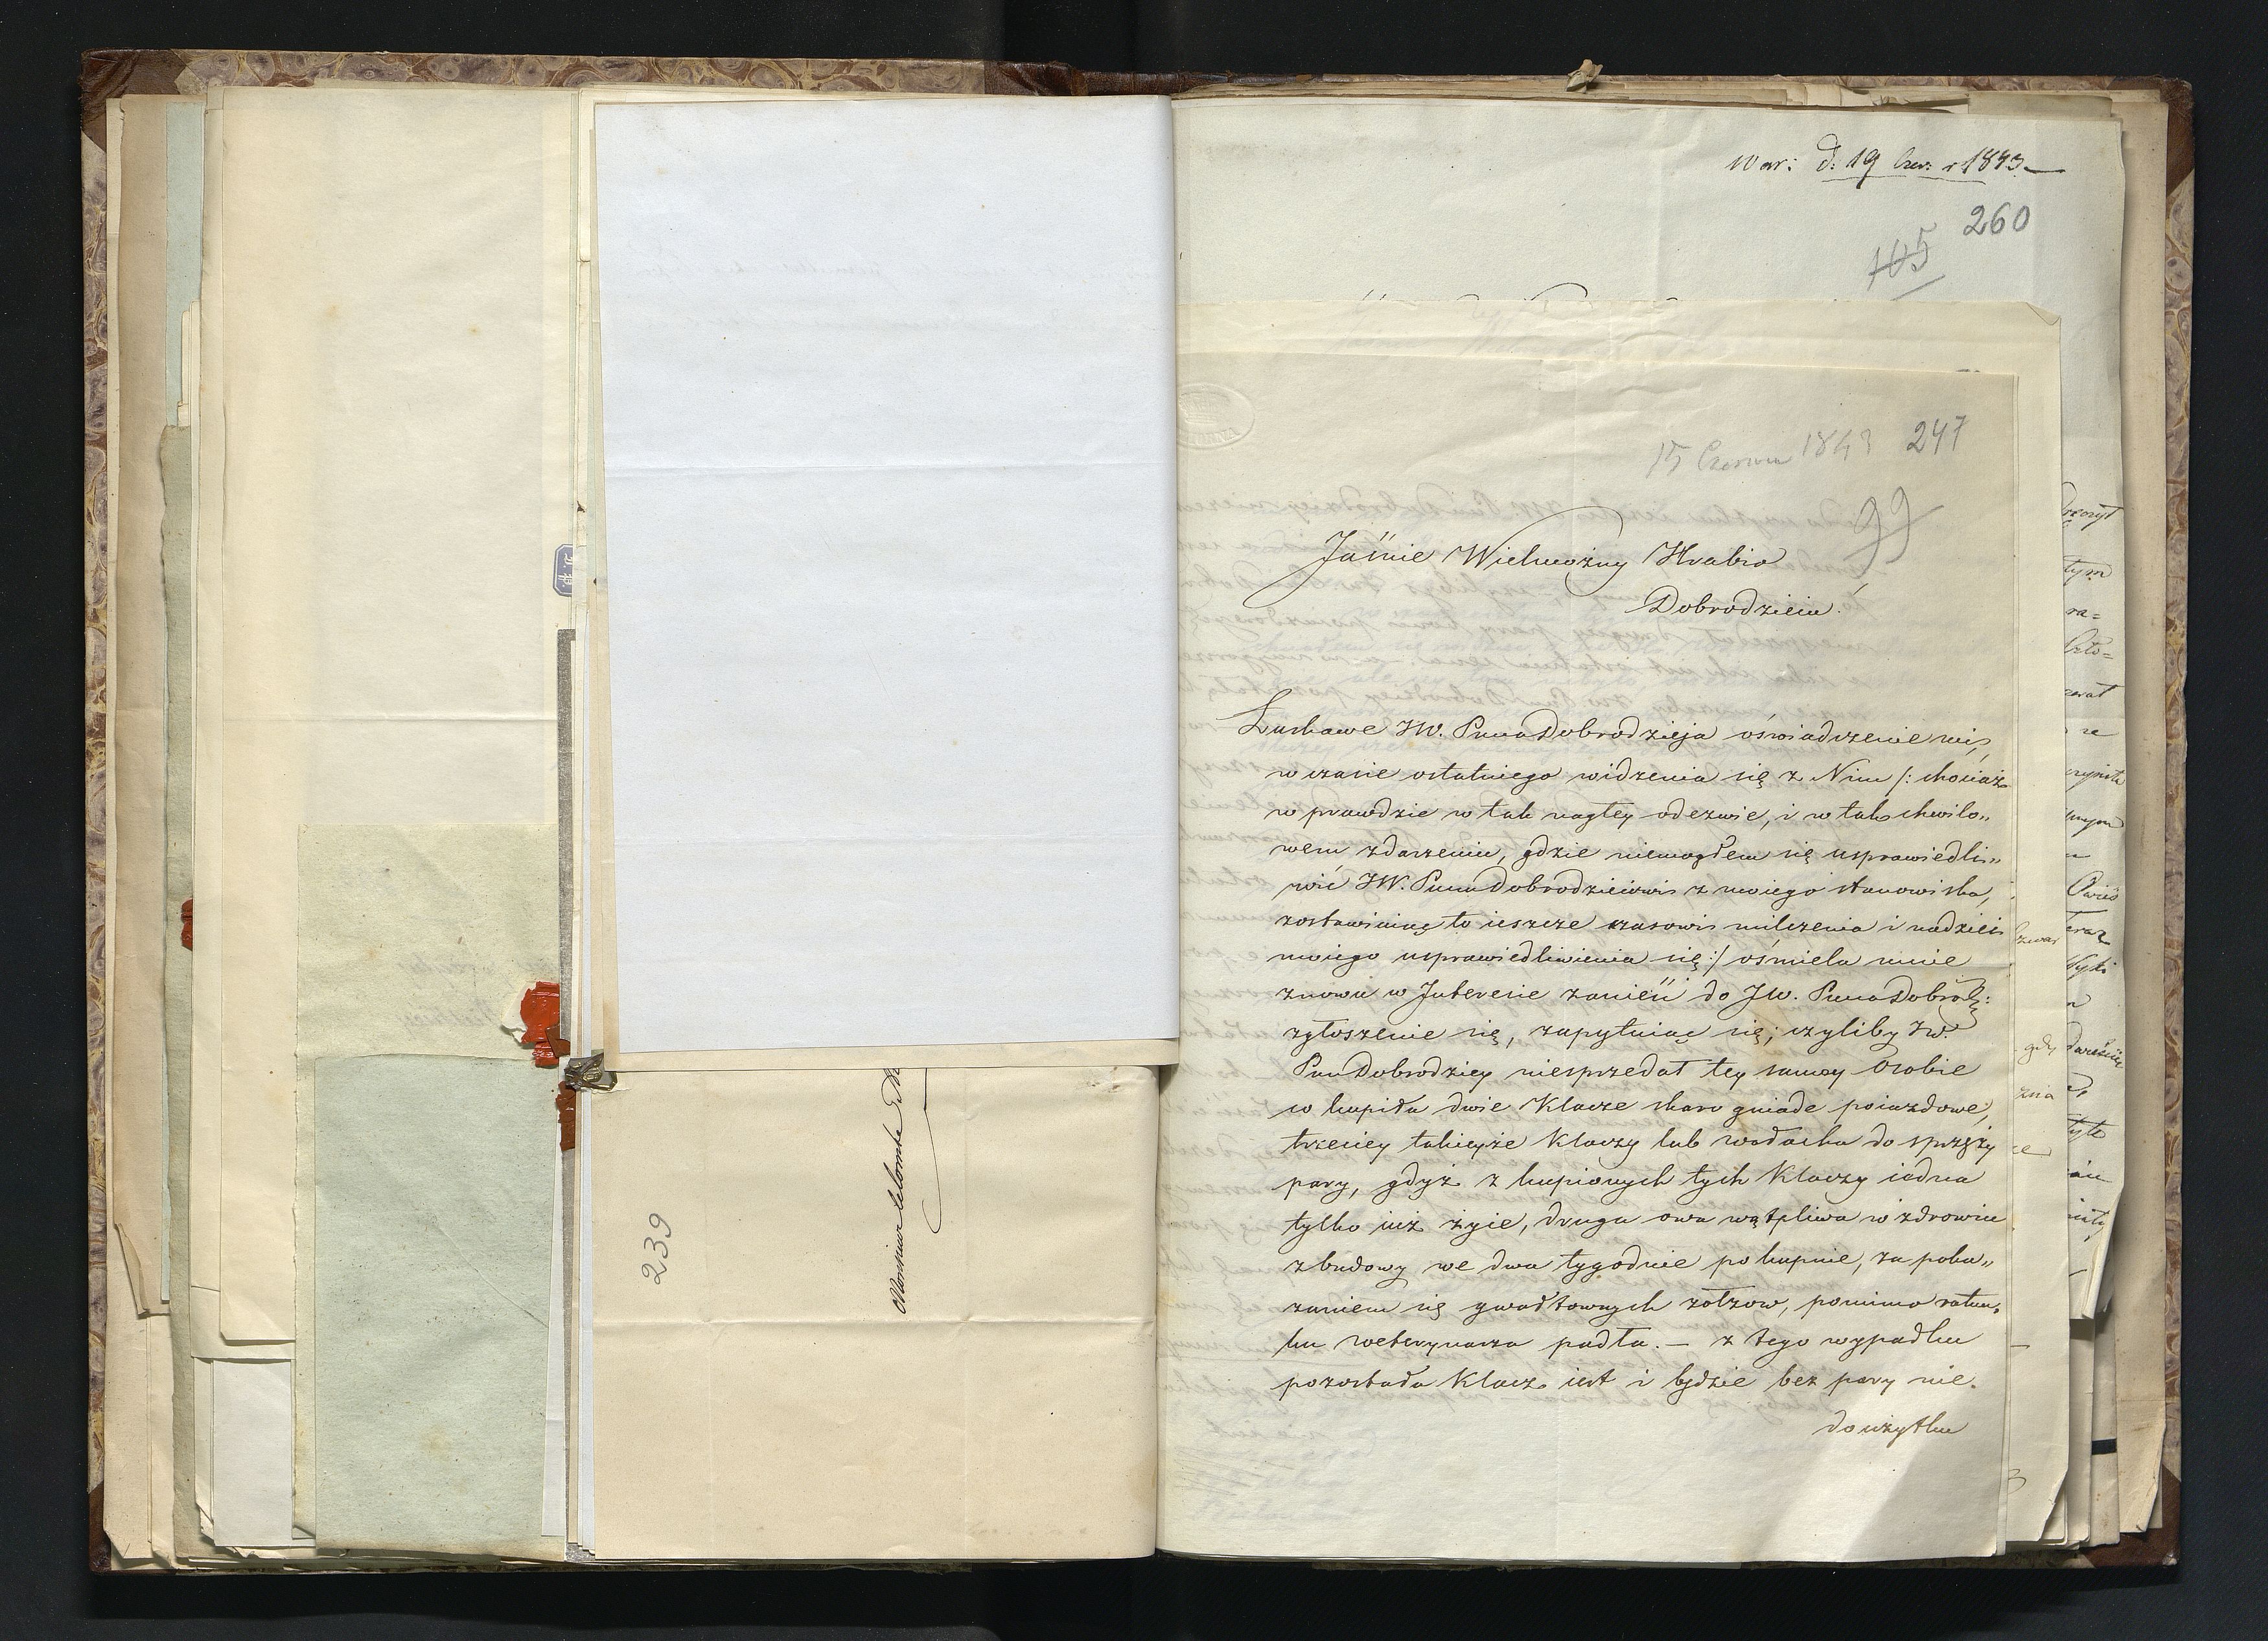 239
Monsieur le Comte
War: d: 19 Czer: r 1843
260
105
15 Czerwca 1843 247
99
Jaśnie Wielmożny Hrabio
Dobrodzieiu!
Łaskawe JW. Pana Dobrodzieja oświadczenie mi się
w czasie ostatniego widzenia się z Nim /: chociaż
w prawdzie w tak nagłey odezwie, i w tak chwilo„
wem zdarzeniu, gdzie niemogłem się usprawiedli„
wić JW. Panu Dobrodzieiowi z moiego stanowiska,
zostawiaiąc to ieszcze czasowi milczenia i nadziei
moiego usprawiedliwienia się :/ ośmiela mnie
znowu w Interesie zanieść do JW. Pana Dobrodz:
zgłoszenie się, zapytuiąc się; czyliby JW.
Pan Dobrodziey niesprzedał tey samey Osobie
co kupiła dwie Klacze skaro gniade poiazdowe,
trzeciey takieyże Klaczy lub wałacha do sprzęży
pary, gdyż z kupionych tych Klaczy iedna
tylko iuż żyie, druga owa wątpliwa w zdrowiu
z budowy we dwa tygodnie po kupnie, za poka„
zaniem się gwałtownych zołzow, pomimo ratun„
ku weterynarza padła. — z tego wypadku
pozostała Klacz iest i będzie bez pary nie.
do użytku